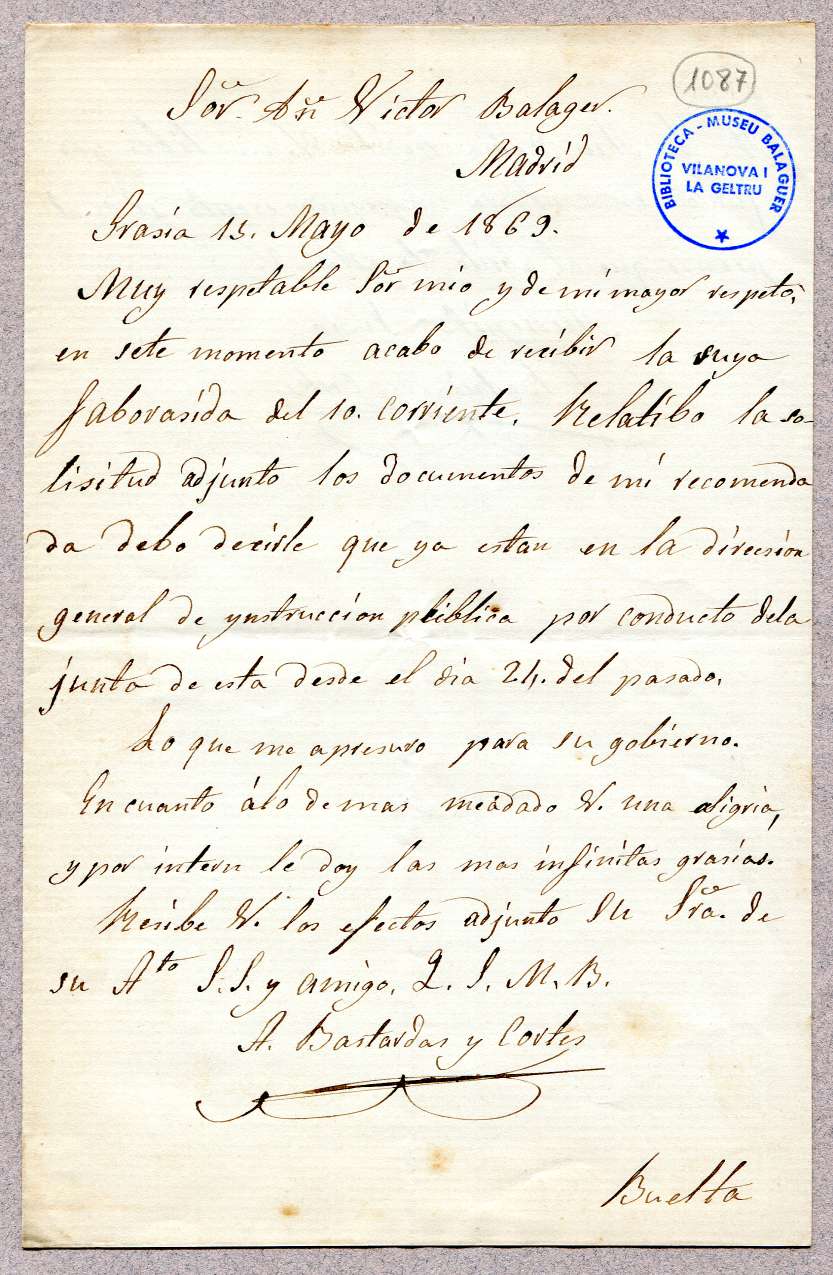 1087
Sor. Dn Victor Balager.
Madrid
BIBLIOTECA - MUSEU BALAGUER
VILANOVA I
LA GELTRU
Grasia 15. Mayo de 1869.
Muy respetable Sor mio y de mi mayor respeto,
en sete momento acabo de recibir la suya
faborasida del 10. corriente. Relatibo la so-
lisitud adjunto los documentos de mi recomenda
da debo decirle que ya estan en la direcsion
general de ynstruccion publica por conducto dela
junta de esta desde el dia 24. del pasado.
Lo que me apresuro para su gobierno.
En cuanto álo demas meádado V. una aligria,
y por interu le doy las mas infinitas grasias.
Resibe V. los efectos adjunto su Sra. de
su Ato S.S. y amigo. Q. S. M. B.
A. Bastardas y Cortes
Buelta